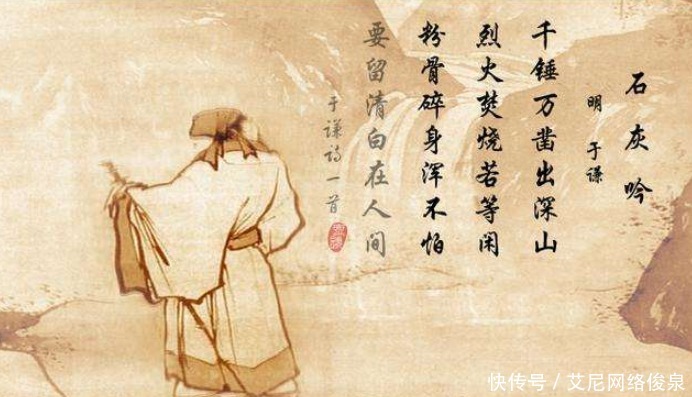 石灰吟
明 于谦
千锤万凿出深山
烈火焚烧若等闲
粉骨碎身浑不怕
要留清白在人间
于谦诗一首
快传号 / 艾尼网络俊泉